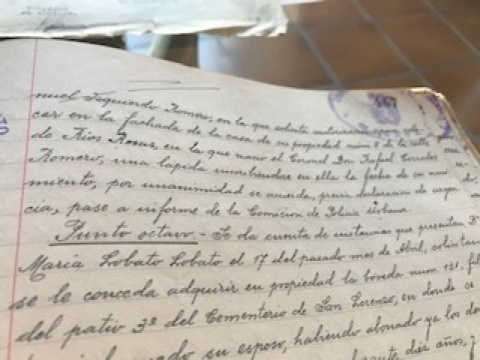 nuel Izquierdo Romero, en la que solicita autorización para colo-
car en la fachada de la casa de su propiedad núm 8 de la calle
de Rios Rosas, en la que nació el Coronel San Rafael
Romero, una lápida en ella la fecha de su naci-
miento, por unanimidad se acuerda, previa declaración de urgen-
cia, pase a informe de la Comisión de Policía Urbana.
Punto octavo.- Se da cuenta de instancias que presentan Dª
María Lobato Lobato el 17 del pasado mes de Abril, solicitando
se le conceda adquirir en propiedad la boveda num 131, fil
del patio 3º del Cementerio de San Lorenzo, en donde se
su esposo, habiendo abonado ya los de
diez años, y
167